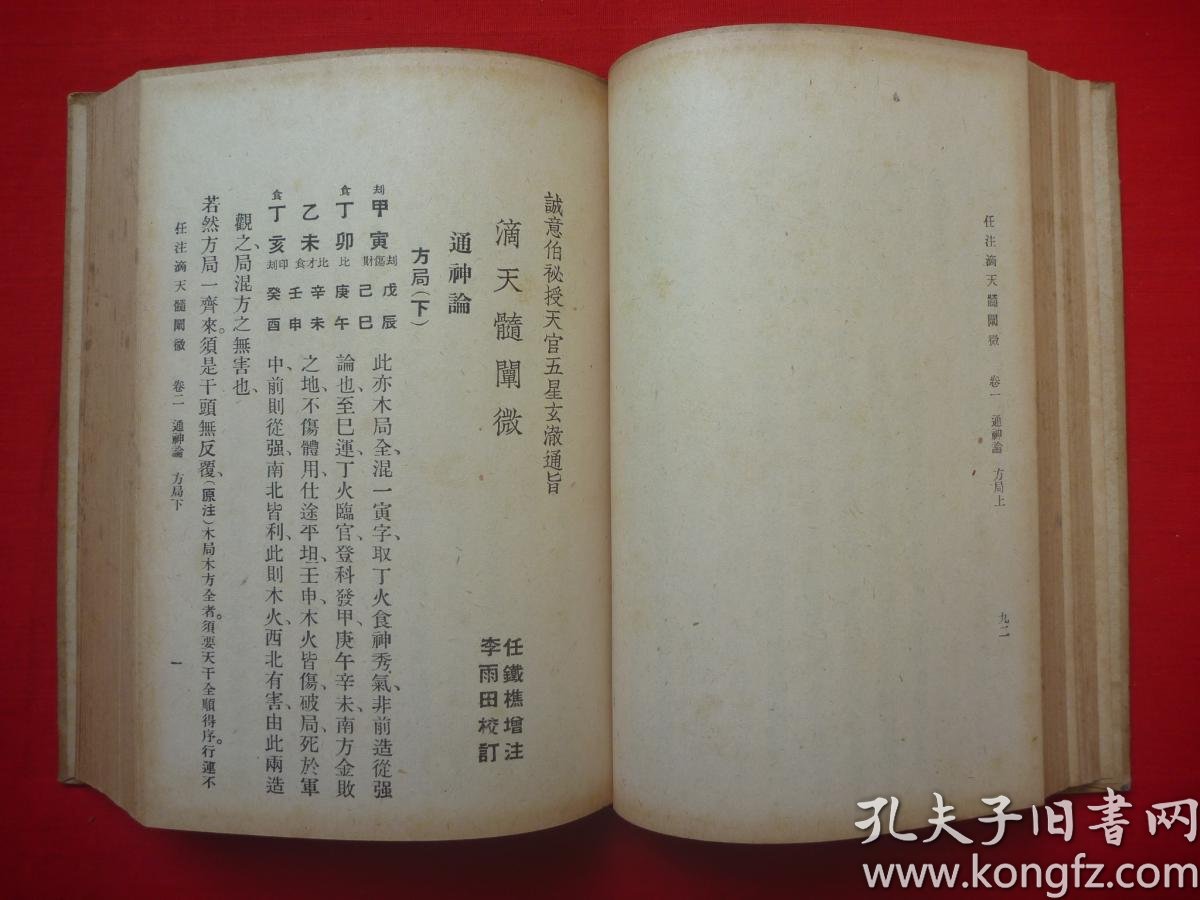 任注滴天髓闡微　卷一　通神論　方局上　九二
誠意伯祕授天官五星玄澈通旨
滴天髓闡微
任鐵樵增注
李雨田校訂
通神論
方局(下)
劫甲寅劫傷財　戊辰　己巳
食丁卯比　庚午
乙未比才食　辛未
食丁亥印劫　壬申　癸酉
此亦木局全、混一寅字、取丁火食神秀氣、非前造從强
論也、至巳運、丁火臨官、登科發甲、庚午辛未、南方金敗
之地、不傷體用、仕途平坦、壬申、木火皆傷、破局、死於軍
中、前則從强、南北皆利、此則木火、西北有害、由此兩造
觀之、局混方之無害也、
若然方局一齊來。須是干頭無反覆、(原注)木局木方全者。須要天干全順得序。行運不
任注滴天髓闡微　卷二　通神論　方局下　一
孔夫子旧书网
www.kongfz.com